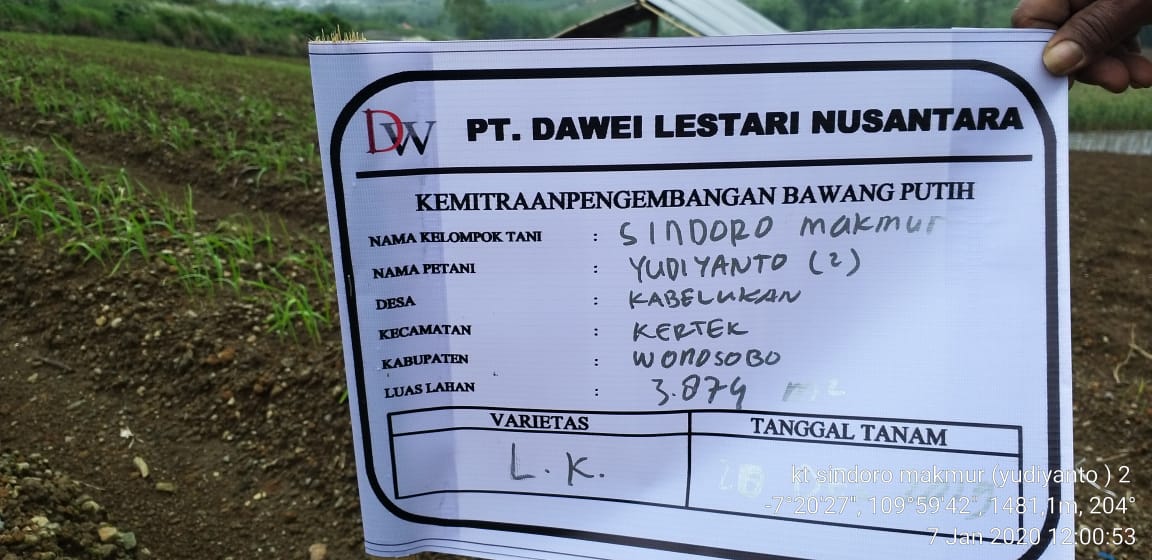 DW PT. DAWEI LESTARI NUSANTARA
KEMITRAANPENGEMBANGAN BAWANG PUTIH
NAMA KELOMPOK TANI : SINDORO makmur
NAMA PETANI : YUDIYANTO (2)
DESA : KABELUKAN
KECAMATAN : KERTEK
KABUPATEN : WONOSOBO
LUAS LAHAN : 3.874 m2
VARIETAS TANGGAL TANAM
L. K.
kt sindoro makmur (yudiyanto ) 2
-7°20'27", 109°59'42", 1481,1m, 204°
7 Jan 2020 12:00:53